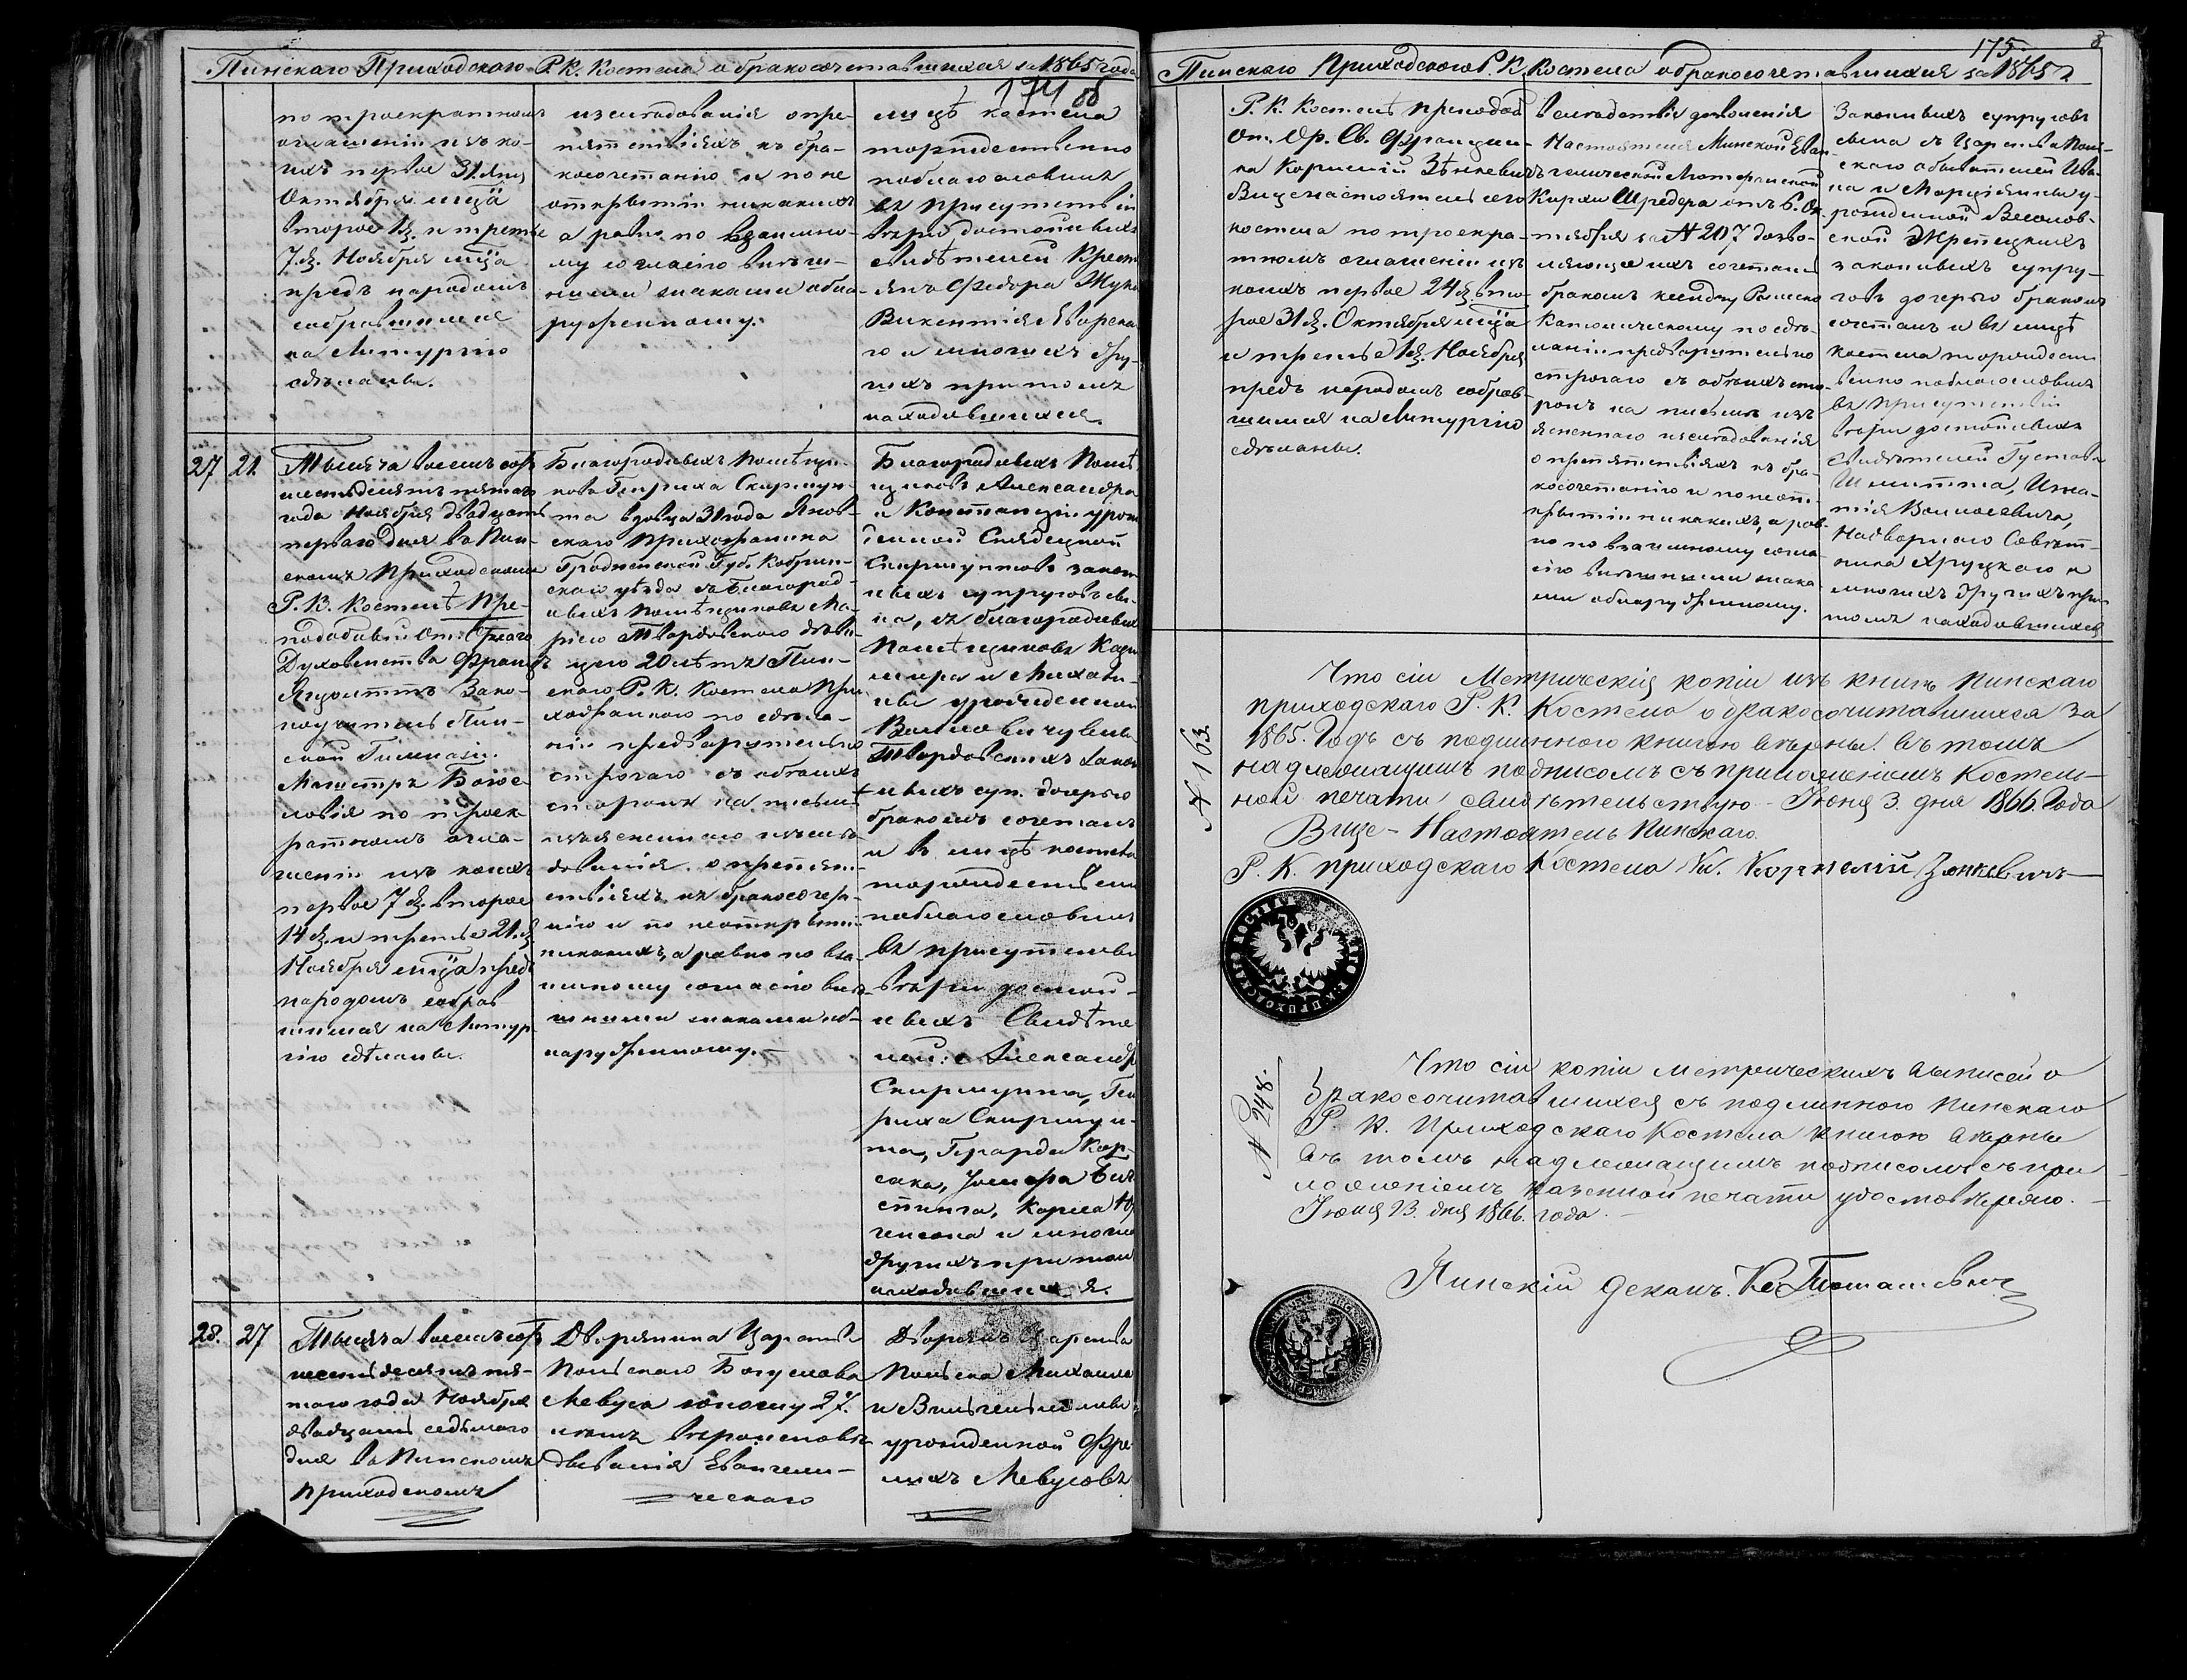 Пинскаго Приходскаго Р. К. Костела о бракосочетавшихся за 1865 года
174 об
по троекратномъ
оглашеніи изъ ко-
ихъ первое 31. дня
Октября мц̃а
второе 1д. и третье
7.д. Ноября мц̃а
предъ народомъ
собравшимся
на Литургію
сдѣланы.
изслѣдованія о пре-
пятствіяхъ къ бра-
косочетанію и по не
открытіи никакихъ
а равно по взаимно-
му согласію внѣш-
ними знаками обна-
руженному.
лицѣ костела
торжественно
поблагословилъ
въ присутствіи
вѣродостойныхъ
свидѣтелей Крест
янъ Федора Жука
Викентія
го и многихъ дру-
гихъ притомъ
находившихся.
27.
21.
Тысяча восемь сотъ
шестьдесятъ пятаго
года Ноября двадцать
перваго дня въ Пин-
скомъ Приходскомъ
Р. К. Костелѣ Пре-
подобный От. Бѣлаго
Духовенства Францъ
Яздовттъ Зако-
ноучитель Пин-
ской Гимназіи.
Магистръ Богос-
ловія по троек-
ратномъ огла-
шеніи изъ коихъ
первое 7 д. второе
14 д. и третье 21. д.
Ноября мц̃а предъ
народомъ собрав
шимся на Литур
гію сдѣланы.
Благородныхъ Помѣщи-
ковъ Генриха Скирмун-
та вдовца 31 года Янов-
скаго Прихожанина
Гродненской Губ. Кобрин-
скаго уѣзда съ Благород-
ныхъ Помѣщиковъ Ма-
рію Твардовскаго дѣви-
цею 20 лѣтъ Пин-
скаго Р. К. Костела При
хожанкою по сдѣла-
ніи предварительно
строгаго съ обоихъ
сторонъ на письмѣ
изъясненнаго изслѣ-
дованія о препят-
ствіяхъ къ бракосочета-
нію и по неоткрытіи
никакихъ, а равно по вза-
имному согласію внѣ-
шними знаками об-
наруженному.-
Благородныхъ Помѣ
щиковъ Александра
и Констанціи урож
денной Снядецкой
Скирмунтовъ закон
ныхъ супруговъ сы-
на, съ благородныхъ
Помѣщиковъ Кази
мира и Михали-
ны урожденной
Валловичувны
Твардовскихъ закон
ныхъ суп. дочерью
бракомъ сочеталъ
и въ лицѣ костела
торжественно
поблагословилъ
въ присутствіи
вѣродостой-
ныхъ Свидѣте
лей: Александра
Скирмунта, Ген
риха Скирмун-
та, Герарда Кор-
сака,
Карла
и многихъ
другихъ притомъ
находившихся.
28.
27
Тысяча восемь сотъ
шестьдесятъ пя-
таго года Ноября
двадцать седьмаго
дня въ Пинскомъ
Приходскомъ
Дворянина Царства
Польскаго Богуслава
Мевуса юношу 27.
лѣтъ вѣроисповѣ-
дыванія Евангели-
ческаго
Дворянъ Царства
Польска Михаила
и Вильгельмины
урожденной
Мевусовъ
Пинскаго Приходскаго Р. К. Костела о бракосочетавшихся за 1865 г
175
8
Р. К. Костелѣ Преподоб
От. Ор. Св. Францис-
ка Корнилій Зѣнкевичъ
Вице настоятель сего
костела по троекра-
тномъ оглашеніи изъ
коихъ первое 24 д. вто-
рое 31 д. Октября мц̃а
и третье 1д. Ноября
предъ народомъ собрав-
шимся на Литургію
сдѣланы.
вслѣдствіе дозволенія
Настоятеля Минской Еван-
гелической Лютеранской
Кирхи Шредера отъ 6. Ок
тября за № 207 дозво-
ляющее ихъ сочетаніе
бракомъ ксендзу Римско
Католическому по сдѣ-
ланіи предварительно
строгаго съ обоихъ сто-
ронъ на письмѣ изъ
ясненнаго изслѣдованія
о препятствіяхъ къ бра-
косочетанію и по неот-
крытіи никакихъ, а рав-
но по взаимному согла-
сію внѣшними знака-
ми обнаруженному.
Законныхъ супруговъ
сына съ Царства Поль-
скаго обывателей Ива-
на и Марціанны у-
рожденной
ской Жепецкихъ
законныхъ супру-
говъ дочерью бракомъ
сочеталъ и въ лицѣ
костела торжест
венно поблагословилъ
въ присутствіи
вѣродостойныхъ
Свидѣтелей Густава
Шмитта, Игна-
тія
Надворнаго Совѣт-
ника Хруцкаго и
многихъ другихъ при
томъ находившихся
№ 163.
Что сіи Метрическія копіи изъ книгъ Пинскаго
приходскаго Р. К. Костела о бракосочитавшихся за
1865. Годъ съ подлинною книгою вѣрны. въ томъ
надлежащимъ подписомъ съ приложеніемъ Костель-
ной печати свидѣтельствую – Іюня 3. дня 1866. Года
Вице-Настоятель Пинскаго
Р. К. приходскаго Костела Кс. Корнелій Зѣнкевичъ
№ 248.
Что сіи копіи метрическихъ выписей о
бракосочитавшихся съ подлинною Пинскаго
Р. К. Приходскаго Костела книгою вѣрны
въ томъ надлежащимъ подписомъ съ при-
ложеніемъ казенной печати удостовѣряю.-
Іюня 23. дня 1866. года.-
Пинскій Деканъ. Кс. Томашевичъ